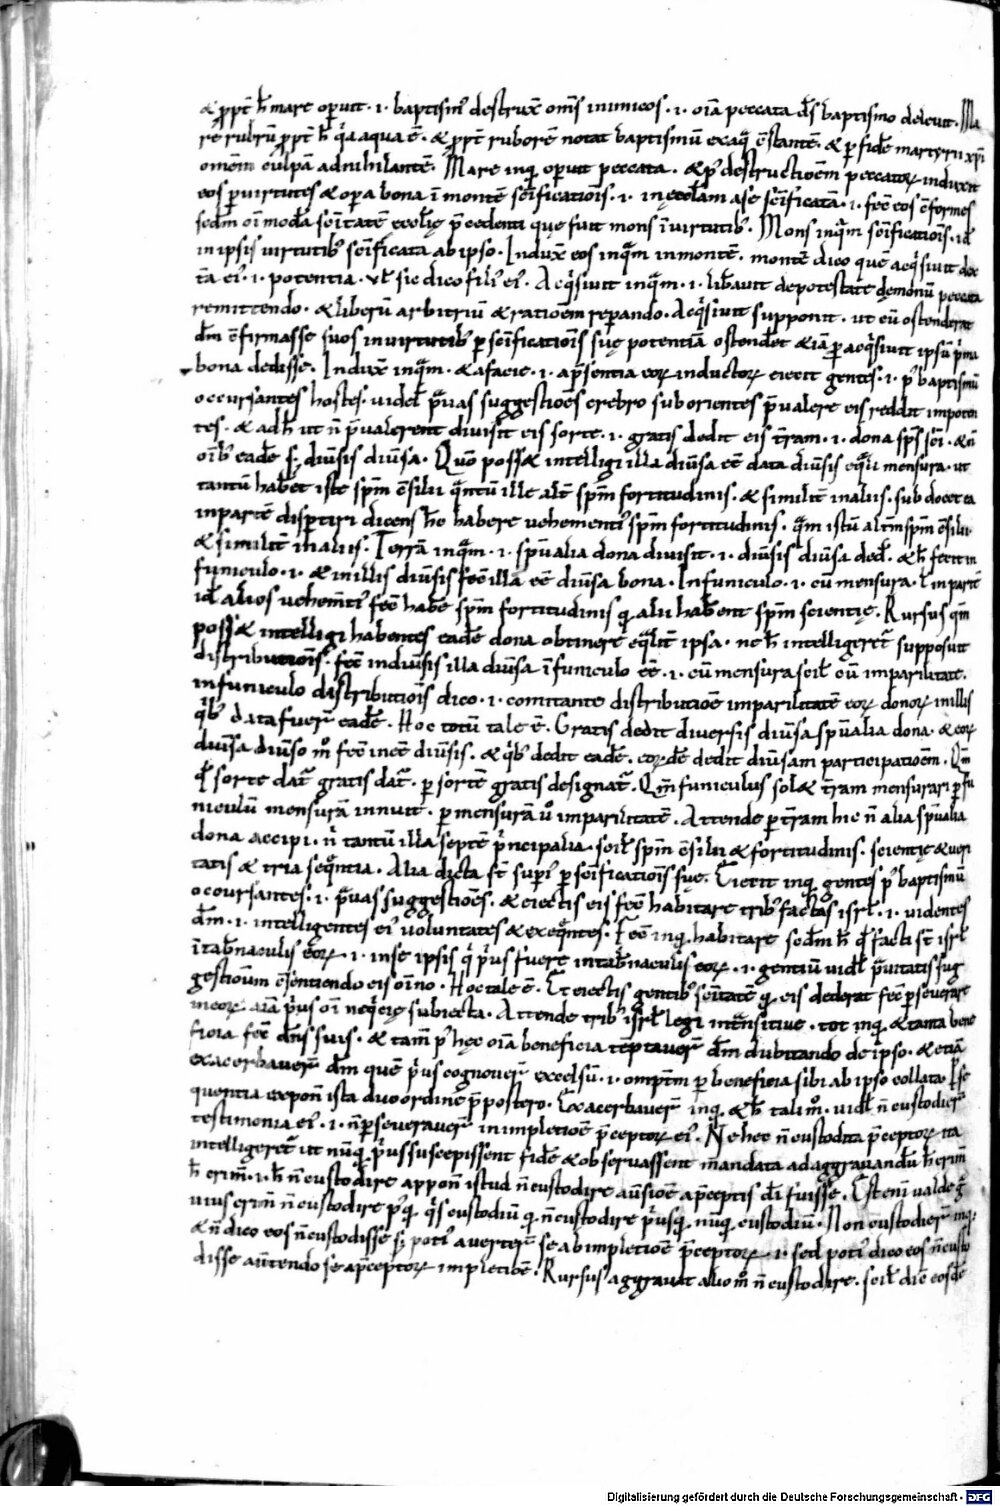 & ꝓpt̄ h̄ mare oꝑuit · ı · baptism̄ destrux̄ om̄s inimicos · ı · oīa peccata d̄s baptismo deleuit · Ma
re rubrū ꝓpt̄ h̄ q̄a aqua ē · & ꝓpt̄ ruborē notat baptismū ex aq̄ c̄stantē · & ꝑ fidē martyrū xp̄i
omēm culpā adnihilantē · Mare inq̄ oꝑuit peccata · & p̄ destructioēm peccatoꝝ induxit
eos ꝑ uirtutes & oꝑa bona ī montē sc̄ificatiōis · ı · in eccl̄am a se sc̄ificatā · ı · fec̄ eos c̄formes
sc̄dm oī moda sc̄itatē eccl̄ie p̄cedenti que fuit mons ī uirtutib; · Mons inq̄m sc̄ificatiōis · id̄
in ipsis uirtutib; sc̄ificata ab ipso · Indux̄ eos inq̄m in montē · montē dico quē acq̄siuit dex
t̄a ei' · ı · potentia · ul̄ sic dico filī ei' · Acq̄siuit inq̄m · ı · lib̄auit de potestate demonū peccata
remittendo · & liberū arbitriū & ratioēm reparando · Acq̄siuit supponit · ut eū ostenderat
d̄m c̄firmasse suos in uirtutib; ꝑ sc̄ificatiōis sue potentiā ostend̄et & iā ꝑ acq̄siuit ipsū p̄ma
bona dedisse · Indux̄ inq̄m · & a facie · ı · a p̄sentia eoꝝ inductoꝝ eiecit gentes · ı · p' baptismū
occursantes hostes · uidel̄ p̄uas suggestioēs crebro suborientes p̄ualere eis reddit impoten
tes · & ad h̄ ut n̄ p̄ualerent diuisit eis sorte · ı · gratis dedit eis t̄ram · ı · dona sp̄s sc̄i · & n̄
oīb; eadē s; diūsis diūsa · Quō poss& intelligi illa diūsa eē data diūsis eq̄li mensura · ut
tantū hab̄et iste sp̄m c̄silii q̄ntū ille alt̄ sp̄m fortitudinis · & similit̄ in aliis · sub docet ea
in partē disꝑtiri dicens h̄c habere uehementi' sp̄m fortitudinis · q̄m istū aliū sp̄m c̄silii
& similit̄ in aliis · Terrā inq̄m · ı · sp̄ualia dona diuisit · ı · diūsis diūsa ded̄ · & h̄ fecit in
funiculo · ı · & in illis diūsis fec̄ illa eē diūsa bona · In funiculo · ı · cū mensura · ł in partē
id̄ alios uehem̄ti' fec̄ hab̄e sp̄m fortitudinis q̄ alii hab̄ent sp̄m scientie · Rursus q̄m
poss& intelligi habentes eadē dona obtinere eq̄lit̄ ipsa · ne h̄ intelliger& supposuit
distributiōis · fec̄ in diūsis illa diūsa ī funiculo eē · ı · cū mensura scil̄ cū imparilitate ·
in funiculo distributiōis dico · ı · comitante distributioē imparilitatē eoꝝ donoꝝ in illis
q̄b; data fuer̄ eadē · Hoc totū tale ē · Gratis dedit diuersis diūsa sp̄ualia dona · & eoꝝ
diūsa diūso m̊ fec̄ inēē diūsis · & q̄b; dedit eadē · eoꝝdē dedit diūsam participatioēm · Qm̄
q̄ sorte dat̄ gratis dat̄ · ꝑ sortē gratis designat̄ · Qm̄ funiculus sol& t̄ram mensurari ꝑ fu
niculum mensurā innuit · ꝑ mensurā ů imparilitatē · Attende ꝑ t̄ram hic n̄ alia sp̄ualia
dona accipi · n̄ tantū illa septē p̄ncipalia · scil̄ sp̄m c̄silii & fortitudinis · scientie & ueri
tatis & tria seq̄ntia · Alia dicta st̄ supi' ꝑ sc̄ificatiōis sue · Eiecit inq̄ gentes p' baptismū
occursantes · ı · p̄uas suggestioēs · & eiectis eis fec̄ habitare trib; factas isrł · ı · uidentes
d̄m · ı · intelligentes ei' uoluntates & exeq̄ntes · Fec̄ inq̄ habitare sc̄dm h̄ q̄ facti st̄ isrł
ī tab̄naculis eoꝝ · ı · in se ipsis q̄ p̄us fuere in tab̄naculis eoꝝ · ı · gentiū uidł p̄uitatis sug
gestioūm c̄sentiendo eis oīno · Hoc tale ē · Et eiectis gentib; sc̄itatē q̄ eis dederat fec̄ ꝑseuerare
in eoꝝ aīa p̄us oī neq̄cie subiecta · Attende trib; isrł legi intn̄sitiue · tot inq̄ & tanta bene
ficia fec̄ d̄ns suis · & tam̄ p' hec oīa beneficia tēptauer̄ d̄m dubitando de ipso · & etiā
exacerbauer̄ d̄m quē p̄us cognouer̄ excelsū · ı · omp̄tm ꝑ beneficia sibi ab ipso collata · Se
quentia expon̄ ista duo ordine p̄postero · Exacerbauer̄ inq̄ & h̄ tali m̊ · uidł n̄ custodier̄
testimonia ei' · ı · n̄ ꝑseuerauer̄ in impletioē p̄ceptoꝝ ei' · Ne hec n̄ custodita p̄ceptoꝝ ita
intelliger& ut nūq̄ p̄us suscepissent fidē & obseruassent mandata ad aggrauandū h̄ crim̄
h̄ crim̄ · ı · h̄ n̄ custodire appon̄ istud n̄ custodire aūsioē a p̄ceptis d̄i fuisse · Est enī ualde g̃
uius crim̄ n̄ custodire p'q̄ q̄s custodiū q̄ n̄ custodire p̄usq̄ nūq̄ custodiū · Non custodier̄ inq̄
& n̄ dico eos n̄ custodisse s; poti' auerter̄ se ab impletioē p̄ceptoꝝ · ı · sed poti' dico eos n̄ custo
disse aūtendo se a p̄ceptoꝝ impletioē · Rursus aggrauat alio m̊ n̄ custodire · scil̄ dic̄ eosdē